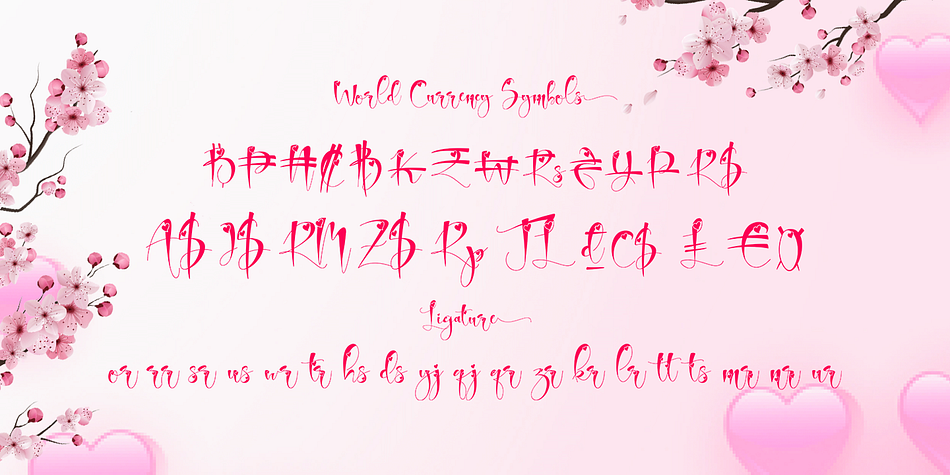 World Currency Symbols
R$
A$ J$ RM Z$ Rp TL ₫ C$ £ € ¤
Ligature
or rr sr us wr tr hs ds yj qj qr zr kr lr tt ts mr nr ur